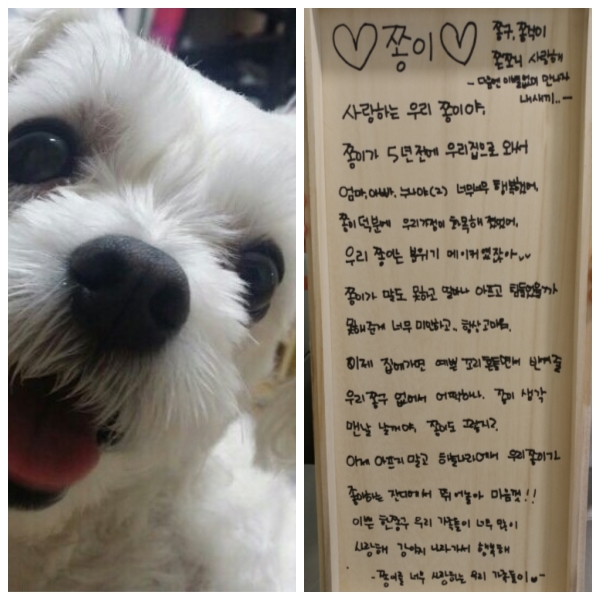 ♡쫑이♡
쫑구, 쫑식이
쫀쪼니 사랑해
- 다음엔 이별없이 만나자
내새끼..-
사랑하는 우리 쫑이야,
쫑이가 5년전에 우리집으로 와서
엄마, 아빠, 누나야(2) 너무너무 행복했어,
쫑이 덕분에 우리가정이 화목해졌었어,
우리 쫑이는 분위기 메이커였잖아
쫑이가 말도 못하고 얼마나 아프고 힘들었을까
못해준게 너무 미안하고.. 항상 고마워.
이제 집에가면 예쁜 꼬리흔들면서 반겨줄
우리쫑구 없어서 어떡하나. 쫑이 생각
맨날 날꺼야, 쫑이도 그렇지?
이제 아프지 말고 하늘나라에서 우리쫑이가
좋아하는 잔디에서 뛰어놀아 마음껏!!
이쁜 한쫑구 우리 가족들이 너무 많이
사랑해 강아지 나라가서 행복해
- 쫑이를 너무 사랑하는 우리 가족들이 -